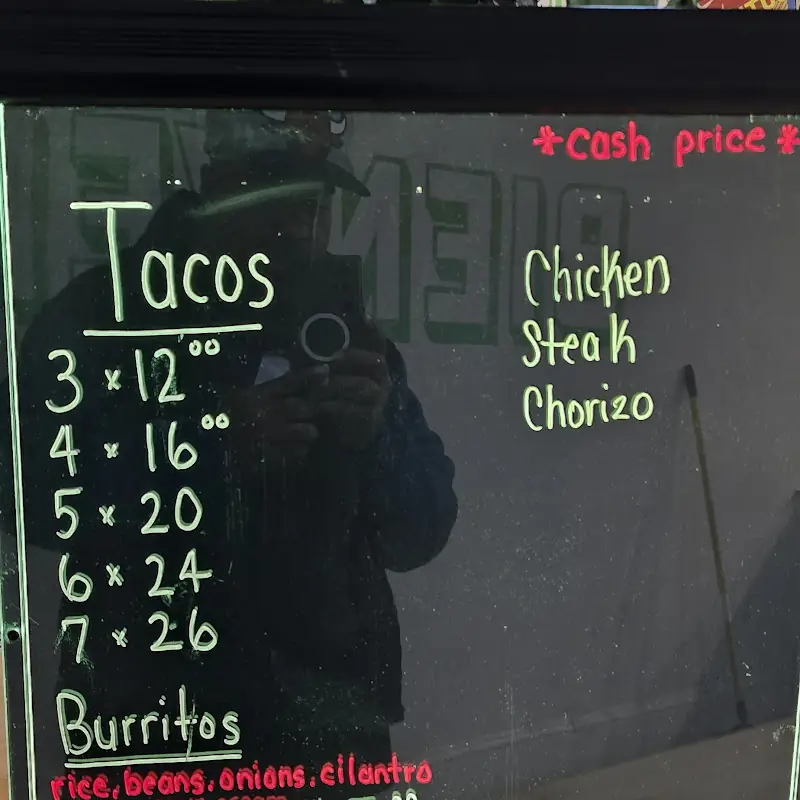 *cash price*
Tacos
3 x 12⁰⁰
4 x 16⁰⁰
5 x 20
6 x 24
7 x 26
Chicken
Steak
Chorizo
Burritos
rice, beans, onions, cilantro